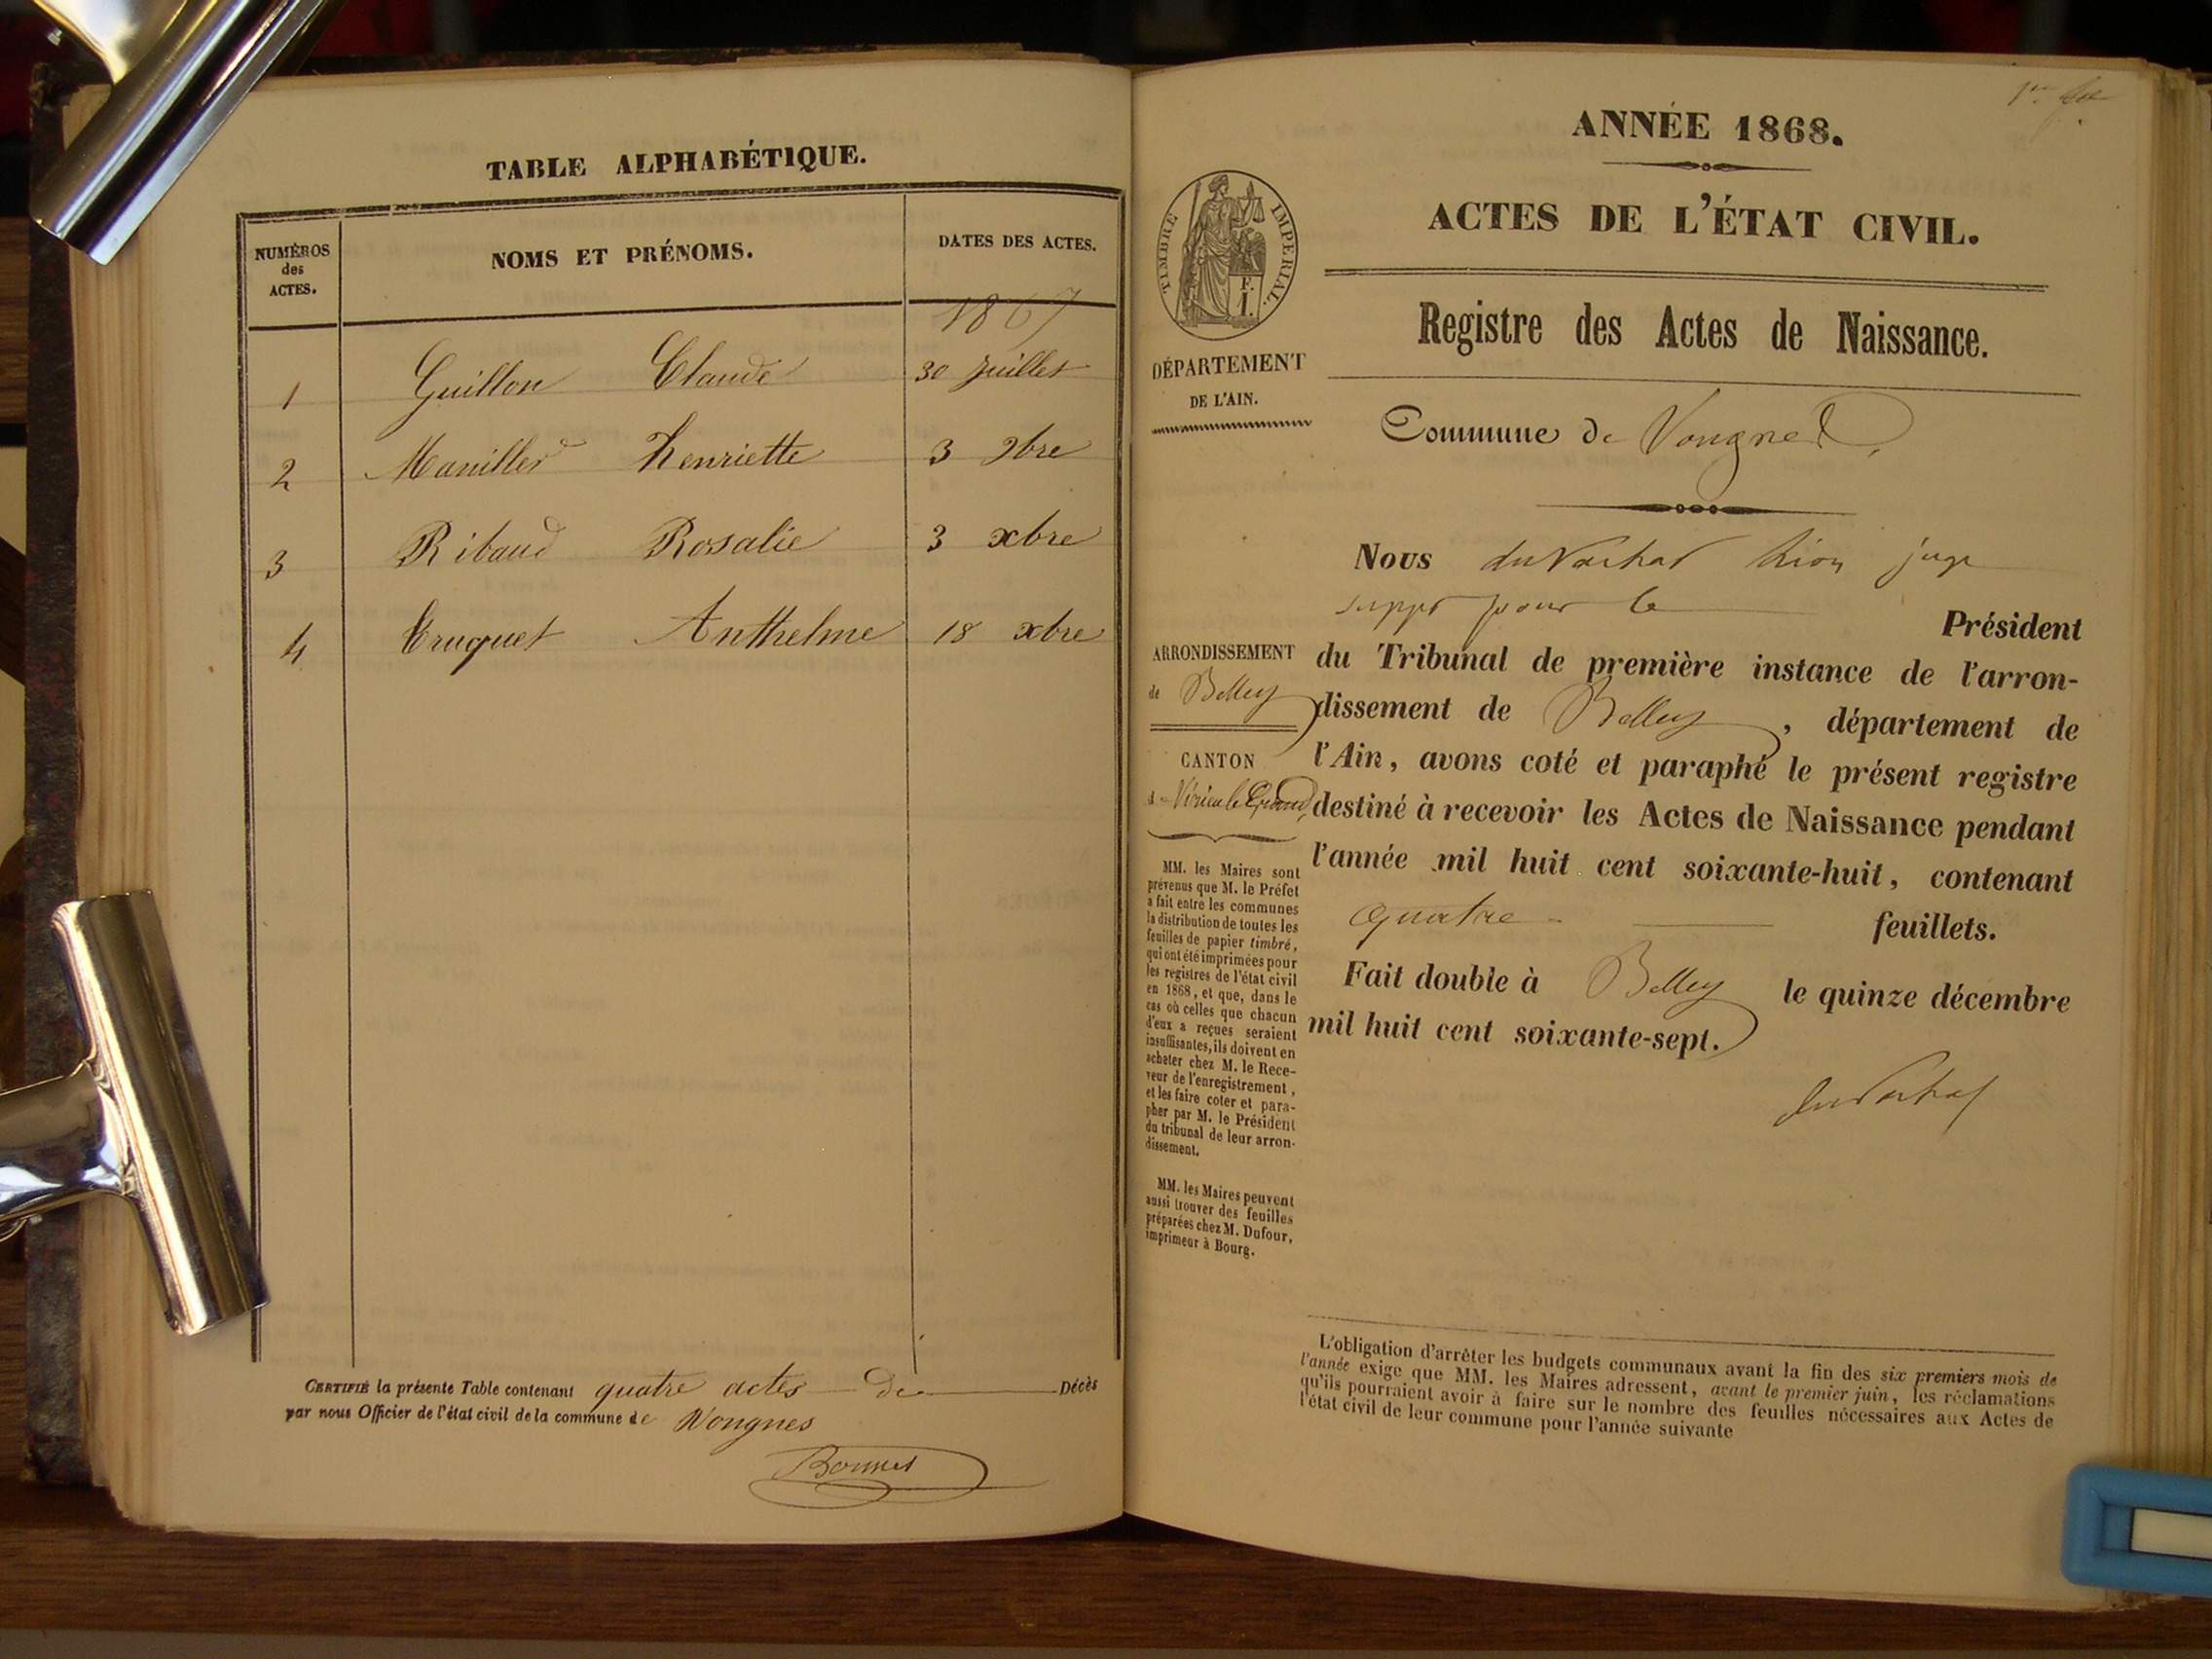 TABLE ALPHABÉTIQUE.
NUMÉROS des ACTES.
NOMS ET PRÉNOMS.
DATES DES ACTES.
1867
1 Guillon Claude 30 Juillet
2 Manillier Henriette 3 9bre
3 Ribaud Rosalie 3 xbre
4 Truquet Anthelme 18 xbre
CERTIFIÉ la présente Table contenant quatre actes de Décès
par nous Officier de l'état civil de la commune de Vongnes
Bonnet
ANNÉE 1868.
ACTES DE L'ÉTAT CIVIL.
TIMBRE IMPERIAL.
F.
1.
Registre des Actes de Naissance.
DÉPARTEMENT
DE L'AIN.
Commune de Vongnes
Nous juge
suppt pour le
Président
du Tribunal de première instance de l'arron-
dissement de Belley, département de
l'Ain, avons coté et paraphé le présent registre
destiné à recevoir les Actes de Naissance pendant
l'année mil huit cent soixante-huit, contenant
quatre feuillets.
Fait double à Belley le quinze décembre
mil huit cent soixante-sept.
ARRONDISSEMENT
de Belley
CANTON
d Virieu le Grand,
MM. les Maires sont
prévenus que M. le Préfet
a fait entre les communes
la distribution de toutes les
feuilles de papier timbré,
qui ont été imprimées pour
les registres de l'état civil
en 1868, et que, dans le
cas où celles que chacun
d'eux a reçues seraient
insuffisantes, ils doivent en
acheter chez M. le Rece-
veur de l'enregistrement,
et les faire coter et para-
pher par M. le Président
du tribunal de leur arron-
dissement.
MM. les Maires peuvent
aussi trouver des feuilles
préparées chez M. Dufour,
imprimeur à Bourg.
L'obligation d'arrêter les budgets communaux avant la fin des six premiers mois de
l'année exige que MM. les Maires adressent, avant le premier juin, les réclamations
qu'ils pourraient avoir à faire sur le nombre des feuilles nécessaires aux Actes de
l'état civil de leur commune pour l'année suivante